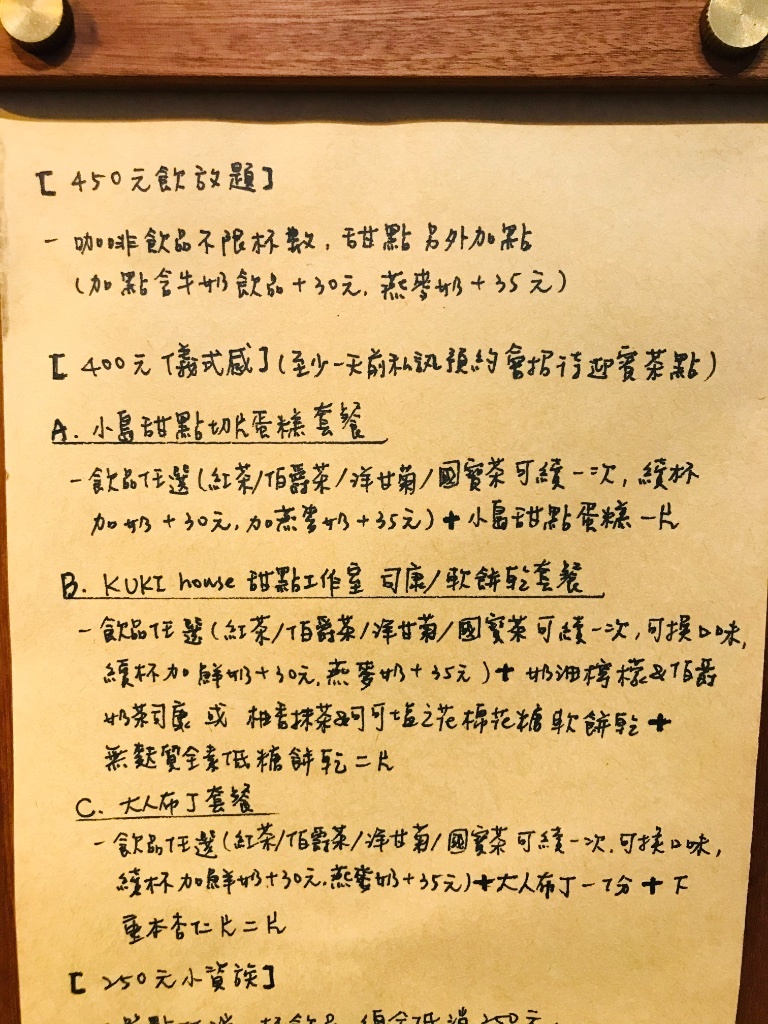 [ 450元飲放題]
- 咖啡飲品不限杯數, 甜點另外加點
(加點含牛奶飲品+30元, 燕麥奶+35元)
[ 400元儀式感] (至少一天前私訊預約會招待迎賓茶點)
A. 小島甜點切片蛋糕套餐
- 飲品任選(紅茶/伯爵茶/洋甘菊/國寶茶可續一次, 續杯
加奶+30元, 加燕麥奶+35元)+小島甜點蛋糕一片
B. KUKI house 甜點工作室 司康/軟餅乾套餐
- 飲品任選(紅茶/伯爵茶/洋甘菊/國寶茶可續一次, 可換口味,
續杯加鮮奶+30元, 燕麥奶+35元)+ 奶油檸檬&伯爵
奶茶司康 或 柚香抹茶&可可塩之花棉花糖軟餅乾+
無麩質全素低糖餅乾二片
C. 大人布丁套餐
- 飲品任選(紅茶/伯爵茶/洋甘菊/國寶茶可續一次, 可換口味,
續杯加鮮奶+30元, 燕麥奶+35元)+大人布丁一份+下
重本杏仁片二片
[ 250元小資族]